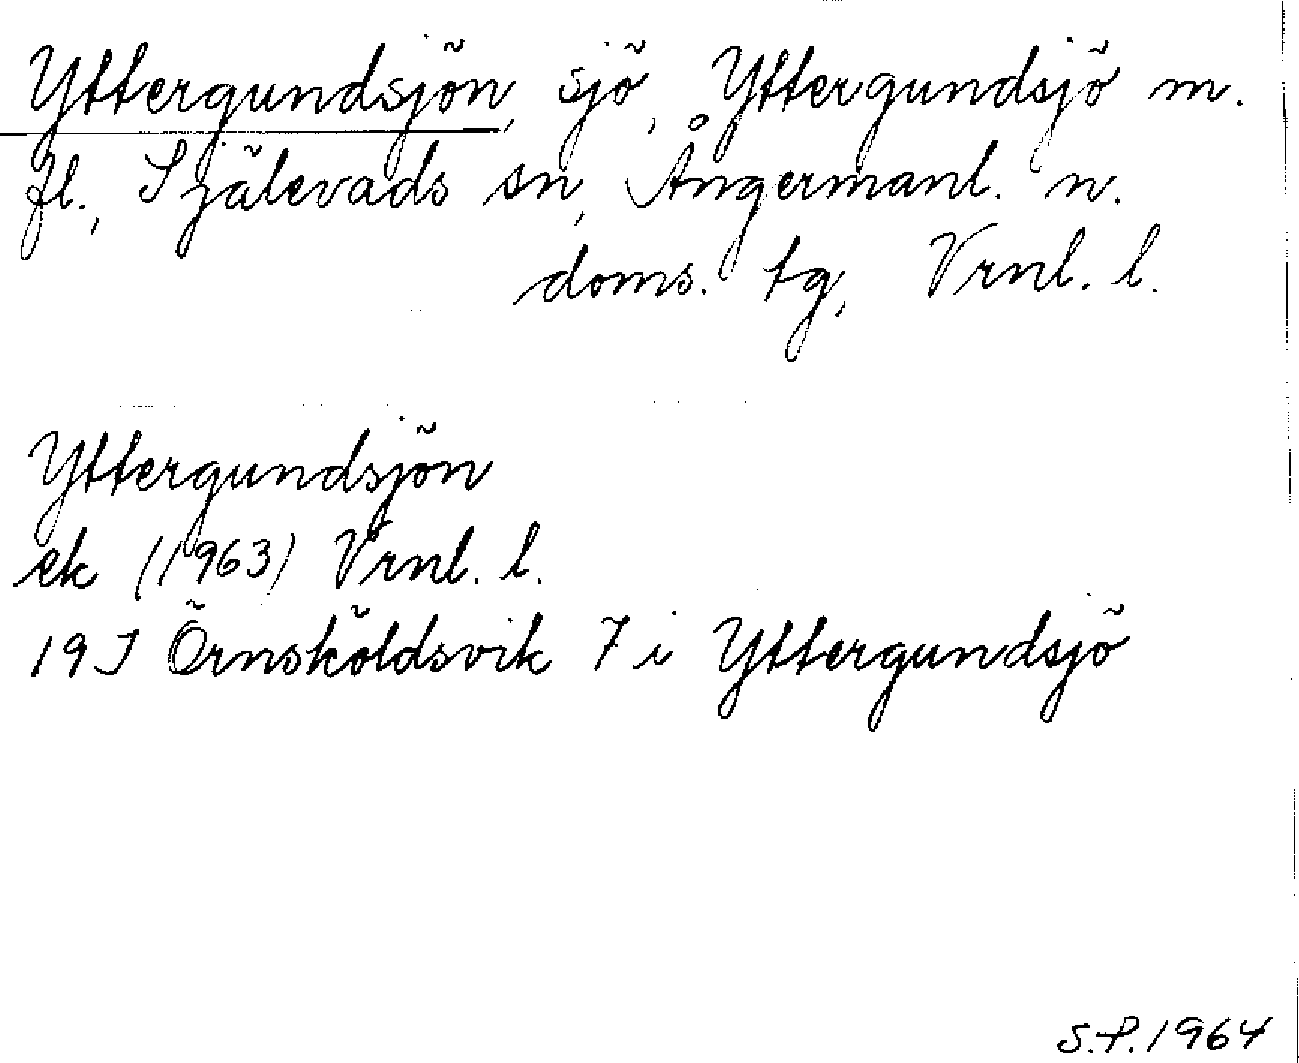 Yttergundsjön, sjö, Yttergundsjö m.
fl., Själevads sn, Ångermanl. n.
doms. tg, Vrnl. l.
Yttergundsjön
ek (1963) Vrnl. l.
19J Örnsköldsvik 7 i Yttergundsjö
S.P. 1964